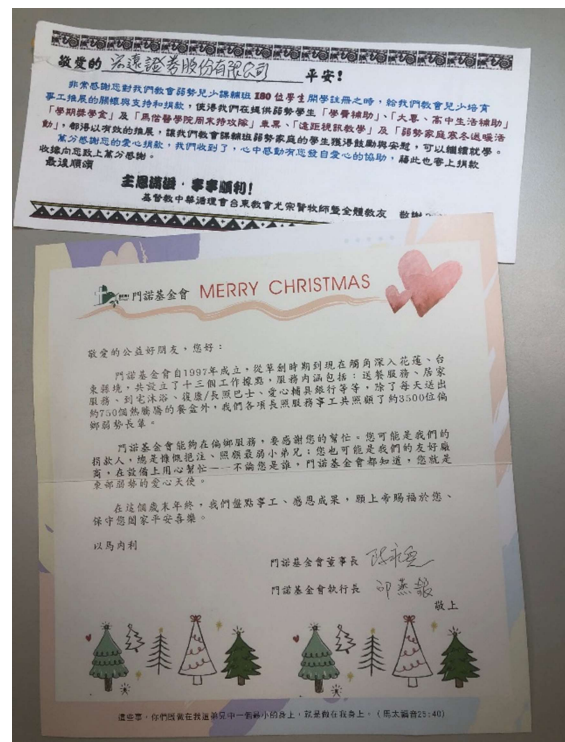 敬愛的 宏遠證券股份有限公司 平安!
非常感謝您對我們教會弱勢兒少課輔班 180 位學生開學註冊之時,給我們教會兒少培育
事工推展的關懷與支持和捐款,使得我們在提供弱勢學生「學費補助」、「大專、高中生活補助」
「學期獎學金」及「馬偕醫學院周末持攻隊」東票、「遠距視訊教學」及「弱勢家庭寒冬送暖活
動」,都得以有效的推展,讓我們教會課輔班弱勢家庭的學生獲得鼓勵與安慰,可以繼續就學。
萬分感謝您的愛心捐款,我們收到了,心中感動有您發自愛心的協助,藉此也寄上捐款
收據向您致上萬分感謝。
最後順頌
主恩滿溢.事事順利!
基督教中華循理會台東教會尤宗賢牧師暨全體教友 敬謝
門諾基金會 MERRY CHRISTMAS
敬愛的公益好朋友,您好:
門諾基金會自1997年成立,從草創時期到現在觸角深入花蓮、台
東縣境,共設立了十三個工作據點,服務內涵包括:送餐服務、居家
服務、到宅沐浴、復康/長照巴士、愛心輔具銀行等等,除了每天送出
約750個熱騰騰的餐盒外,我們各項長照服務事工共照顧了約3500位偏
鄉弱勢長輩。
門諾基金會能夠在偏鄉服務,要感謝您的幫忙。您可能是我們的
捐款人,總是慷慨挹注、照顧最弱小弟兄;您也可能是我們的友好廠
商,在設備上用心幫忙——不論您是誰,門諾基金會都知道,您就是
東部弱勢的愛心天使。
在這個歲末年終,我們盤點事工、感恩成果,願上帝賜福於您、
保守您闔家平安喜樂。
以馬內利
門諾基金會董事長
門諾基金會執行長
敬上
這些事,你們既做在我這弟兄中一個最小的身上,就是做在我身上。(馬太福音25:40)